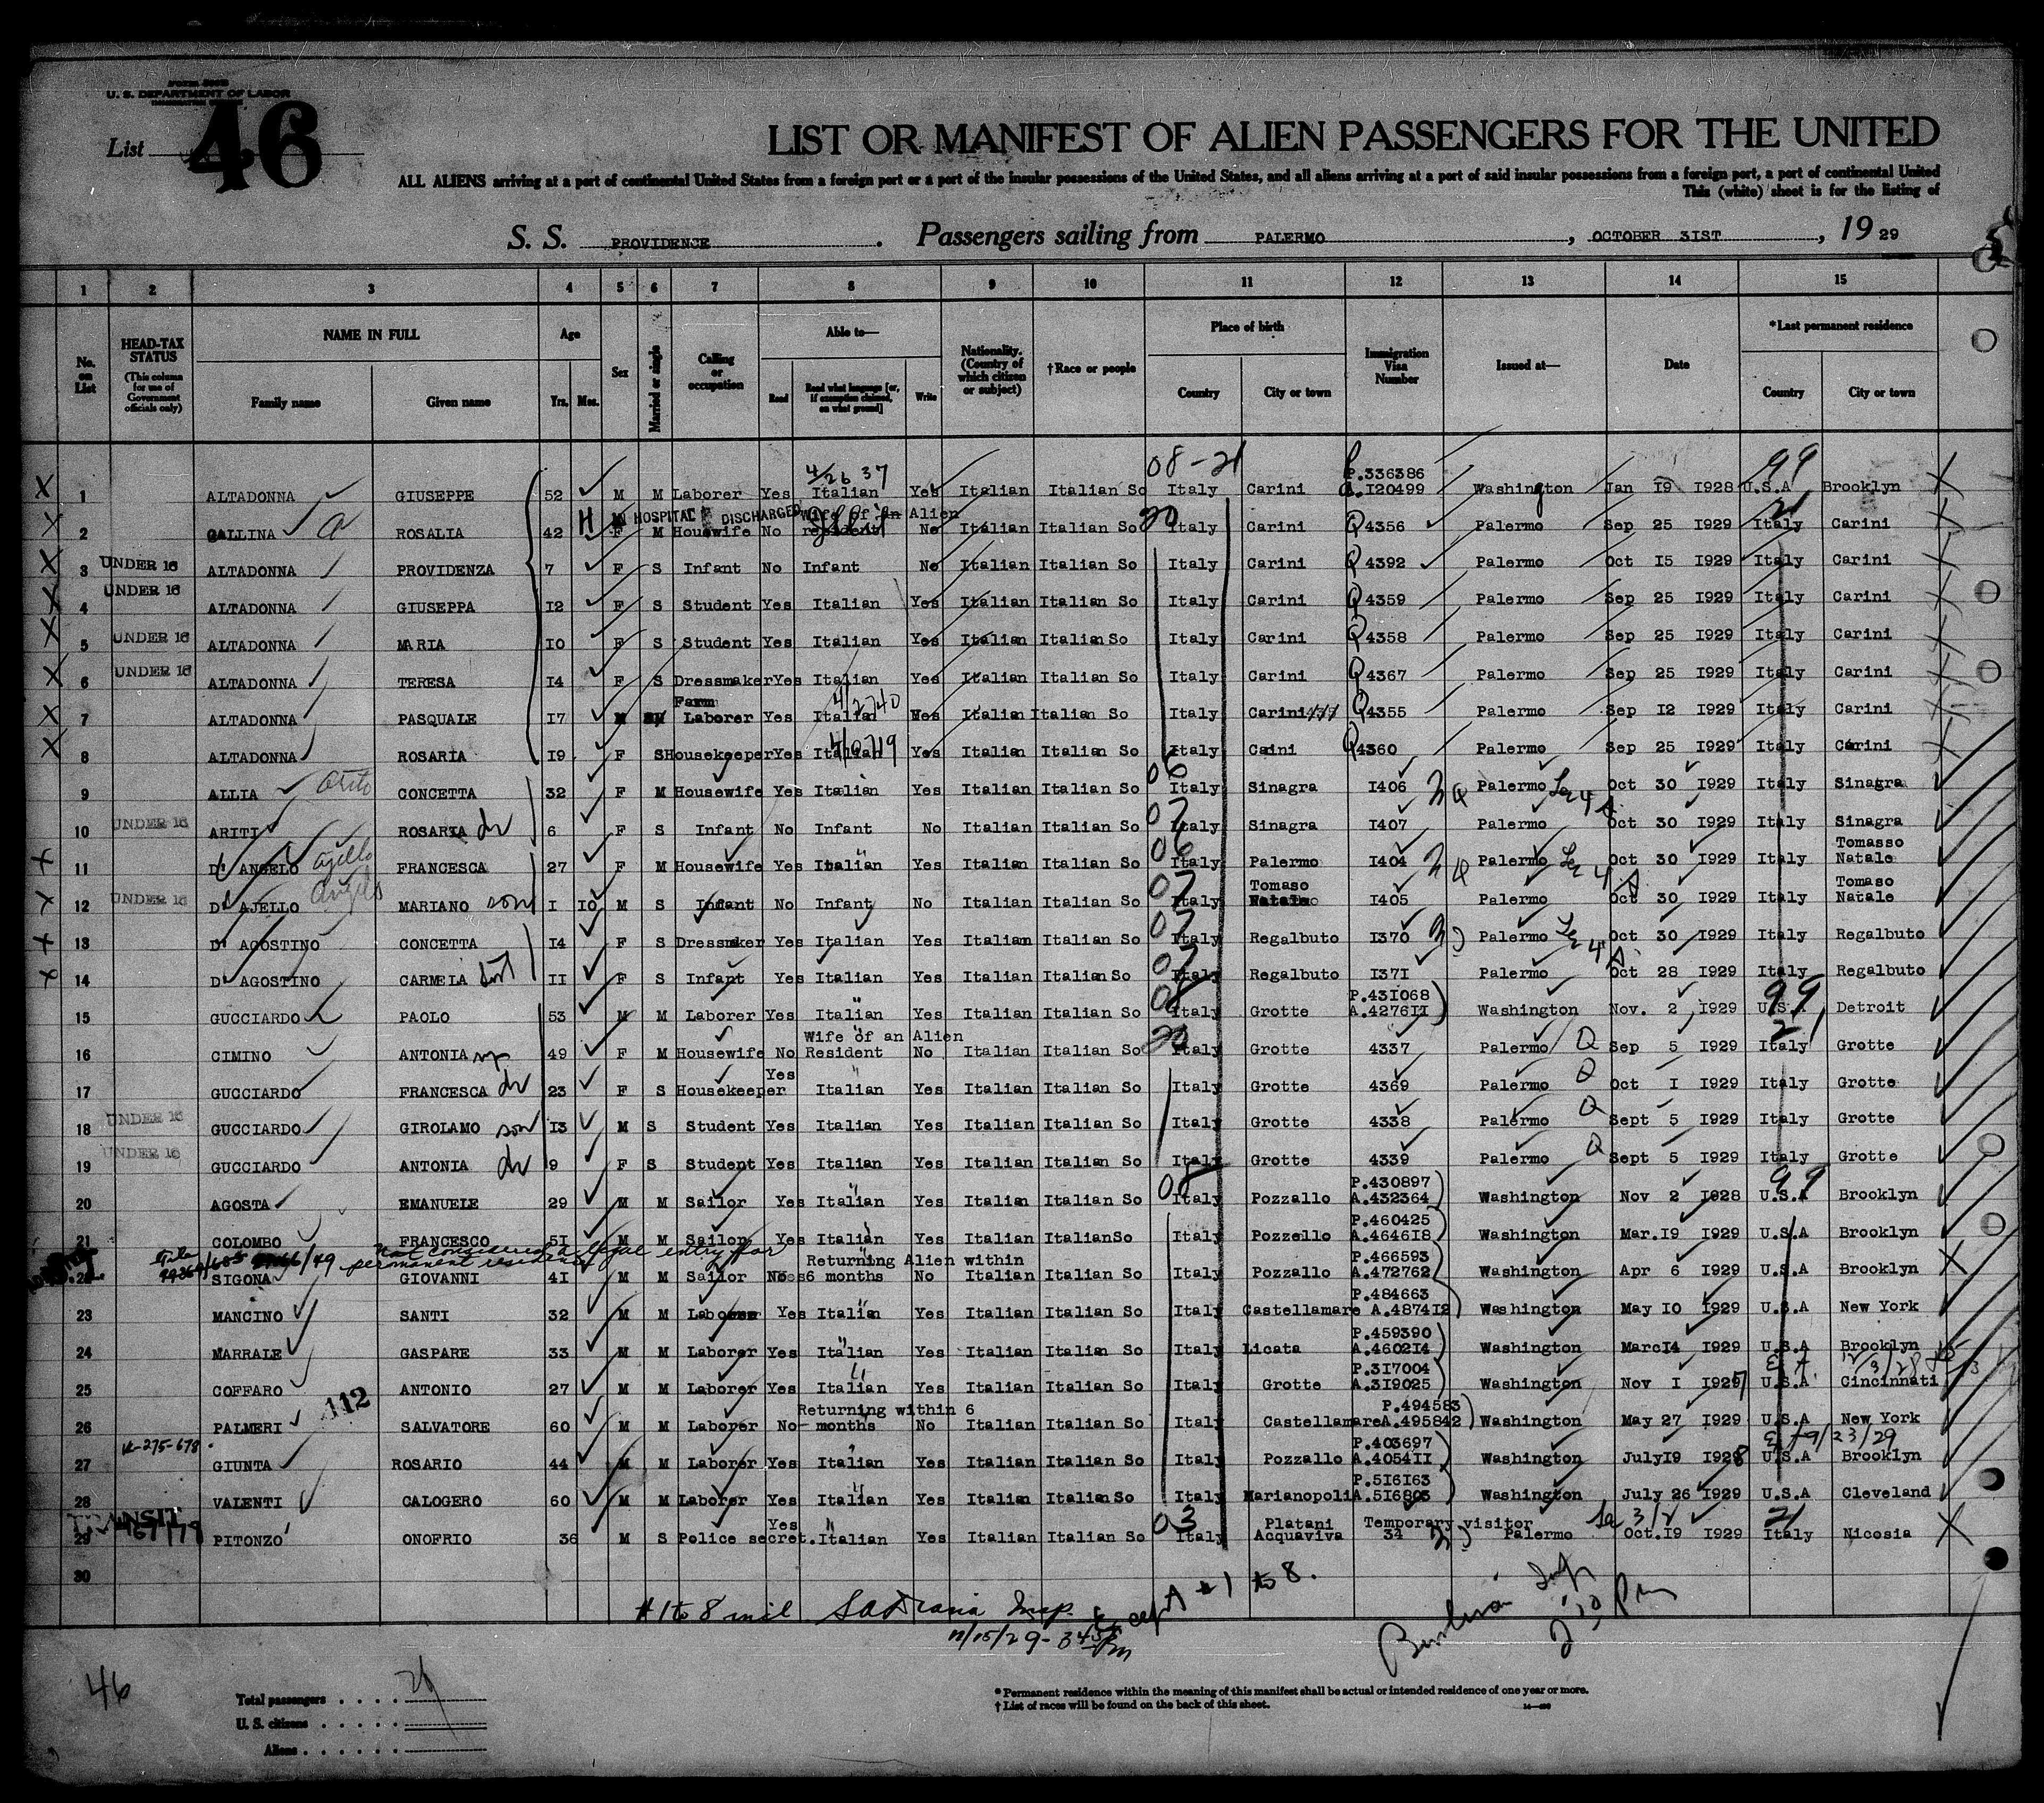 U. S. DEPARTMENT OF LABOR
List 46
LIST OR MANIFEST OF ALIEN PASSENGERS FOR THE UNITED
ALL ALIENS arriving at a port of continental United States from a foreign port or a port of the insular possessions of the United States, and all aliens arriving at a port of said insular possessions from a foreign port, a port of continental United
This (white) sheet is for the listing of
S. S. PROVIDENCE. Passengers sailing from PALERMO, OCTOBER 3IST, 19 29
1 2 3 4 5 6 7 8 9 10 11 12 13 14 15
No. on List
HEAD-TAX STATUS (This column for use of Government officials only)
NAME IN FULL Family name Given name
Age Yrs. Mos.
Sex
Married or single
Calling or occupation
Able to— Read Read what language [or, if exemption claimed, on what ground] Write
Nationality. (Country of which citizen or subject)
†Race or people
Place of birth Country City or town
Immigration Visa Number
Issued at—
Date
*Last permanent residence Country City or town
08-21 99
4/26 37 P.336386
X 1 ALTADONNA GIUSEPPE 52 M M Laborer Yes Italian Yes Italian Italian So Italy Carini I20499 Washington Jan I9 I928 U.S.A Brooklyn X
H HOSPITAL DISCHARGED Wife of an Alien 20 21
X 2 GALLINA ROSALIA 42 F M Housewife No resident No Italian Italian So Italy Carini Q 4356 Palermo Sep 25 I929 Italy Carini X
X 3 UNDER 16 ALTADONNA PROVIDENZA 7 F S Infant No Infant No Italian Italian So Italy Carini Q 4392 Palermo Oct I5 I929 Italy Carini X
X 4 UNDER 16 ALTADONNA GIUSEPPA I2 F S Student Yes Italian Yes Italian Italian So Italy Carini Q 4359 Palermo Sep 25 I929 Italy Carini X
X 5 UNDER 16 ALTADONNA MARIA I0 F S Student Yes Italian Yes Italian Italian So Italy Carini Q 4358 Palermo Sep 25 I929 Italy Carini X
X 6 UNDER 16 ALTADONNA TERESA I4 F S Dressmaker Yes Italian Yes Italian Italian So Italy Carini Q 4367 Palermo Sep 25 I929 Italy Carini X
Farm
X 7 ALTADONNA PASQUALE I7 M Laborer Yes Italian Yes Italian Italian So Italy Carini Q 4355 Palermo Sep I2 I929 Italy Carini X
X 8 ALTADONNA ROSARIA I9 F S Housekeeper Yes Italian Yes Italian Italian So Italy Caini Q 4360 Palermo Sep 25 I929 Italy Carini X
06
9 ALLIA CONCETTA 32 F M Housewife Yes Italian Yes Italian Italian So Italy Sinagra I406 Palermo Oct 30 I929 Italy Sinagra
07
10 UNDER 16 ARITI ROSARIA dr 6 F S Infant No Infant No Italian Italian So Italy Sinagra I407 Palermo Oct 30 I929 Italy Sinagra
06 Tomasso
X 11 D' ANGELO Ajello FRANCESCA 27 F M Housewife Yes Italian Yes Italian Italian So Italy Palermo I404 Palermo Oct 30 I929 Italy Natale
07 Tomaso Tomaso
X 12 UNDER 16 D' AJELLO Angelo MARIANO son I I0 M S Infant No Infant No Italian Italian So Italy Natale I405 Palermo Oct 30 I929 Italy Natale
07
X 13 D' AGOSTINO CONCETTA I4 F S Dressmaker Yes Italian Yes Italian Italian So Italy Regalbuto I370 Palermo Oct 30 I929 Italy Regalbuto
07
X 14 D' AGOSTINO CARMELA sist II F S Infant Yes Italian Yes Italian Italian So Italy Regalbuto I37I Palermo Oct 28 I929 Italy Regalbuto
08 P.43I068 99
15 GUCCIARDO PAOLO 53 M M Laborer Yes Italian Yes Italian Italian So Italy Grotte A.4276II Washington Nov. 2 I929 U.S.A Detroit
Wife of an Alien 20 21
16 CIMINO ANTONIA 49 F M Housewife No Resident No Italian Italian So Italy Grotte 4337 Palermo Q Sep 5 I929 Italy Grotte
17 GUCCIARDO FRANCESCA dr 23 F S Housekeeper Yes Italian Yes Italian Italian So Italy Grotte 4369 Palermo Q Oct I I929 Italy Grotte
18 UNDER 16 GUCCIARDO GIROLAMO son I3 M S Student Yes Italian Yes Italian Italian So Italy Grotte 4338 Palermo Q Sept 5 I929 Italy Grotte
19 UNDER 16 GUCCIARDO ANTONIA dr 9 F S Student Yes Italian Yes Italian Italian So Italy Grotte 4339 Palermo Q Sept 5 I929 Italy Grotte
08 P.430897 99
20 AGOSTA EMANUELE 29 M M Sailor Yes Italian Yes Italian Italian So Italy Pozzallo A.432364 Washington Nov 2 I928 U.S.A Brooklyn
P.460425
21 COLOMBO FRANCESCO 5I M M Sailor Yes Italian Yes Italian Italian So Italy Pozzello A.4646I8 Washington Mar.I9 I929 U.S.A Brooklyn
not considered a legal entry for permanent residence
Returning Alien within P.466593
22 SIGONA GIOVANNI 4I M M Sailor No 6 months No Italian Italian So Italy Pozzallo A.472762 Washington Apr 6 I929 U.S.A Brooklyn X
P.484663
23 MANCINO SANTI 32 M M Laborer Yes Italian Yes Italian Italian So Italy Castellamare A.4874I2 Washington May I0 I929 U.S.A New York
P.459390
24 MARRALE GASPARE 33 M M Laborer Yes Italian Yes Italian Italian So Italy Licata A.4602I4 Washington Marc I4 I929 U.S.A Brooklyn
P.3I7004
25 COFFARO ANTONIO 27 M M Laborer Yes Italian Yes Italian Italian So Italy Grotte A.3I9025 Washington Nov I I927 U.S.A. Cincinnati
112 Returning within 6 P.494583
26 PALMERI SALVATORE 60 M M Laborer No - months No Italian Italian So Italy Castellamare A.495842 Washington May 27 I929 U.S.A New York
R-275-678 P.403697 9/23/29
27 GIUNTA ROSARIO 44 M M Laborer Yes Italian Yes Italian Italian So Italy Pozzallo A.4054II Washington July I9 I928 U.S.A Brooklyn
P.5I6I63
28 VALENTI CALOGERO 60 M M Laborer Yes Italian Yes Italian Italian So Italy Marianopoli A.5I6803 Washington July 26 I929 U.S.A Cleveland
TRANSIT 03 Platani Temporary visitor 21
29 PITONZO ONOFRIO 36 M S Police secret. Yes Italian Yes Italian Italian So Italy Acquaviva 34 Palermo Oct.I9 I929 Italy Nicosia X
30
#1 to 8 incl. Insp. Except #1 to 8.
11/15/29 - 3 45 Pm
Insp 2:30 Pm
46
Total passengers . . . . 29
U. S. citizens . . . . .
Aliens . . . . . .
* Permanent residence within the meaning of this manifest shall be actual or intended residence of one year or more.
† List of races will be found on the back of this sheet.